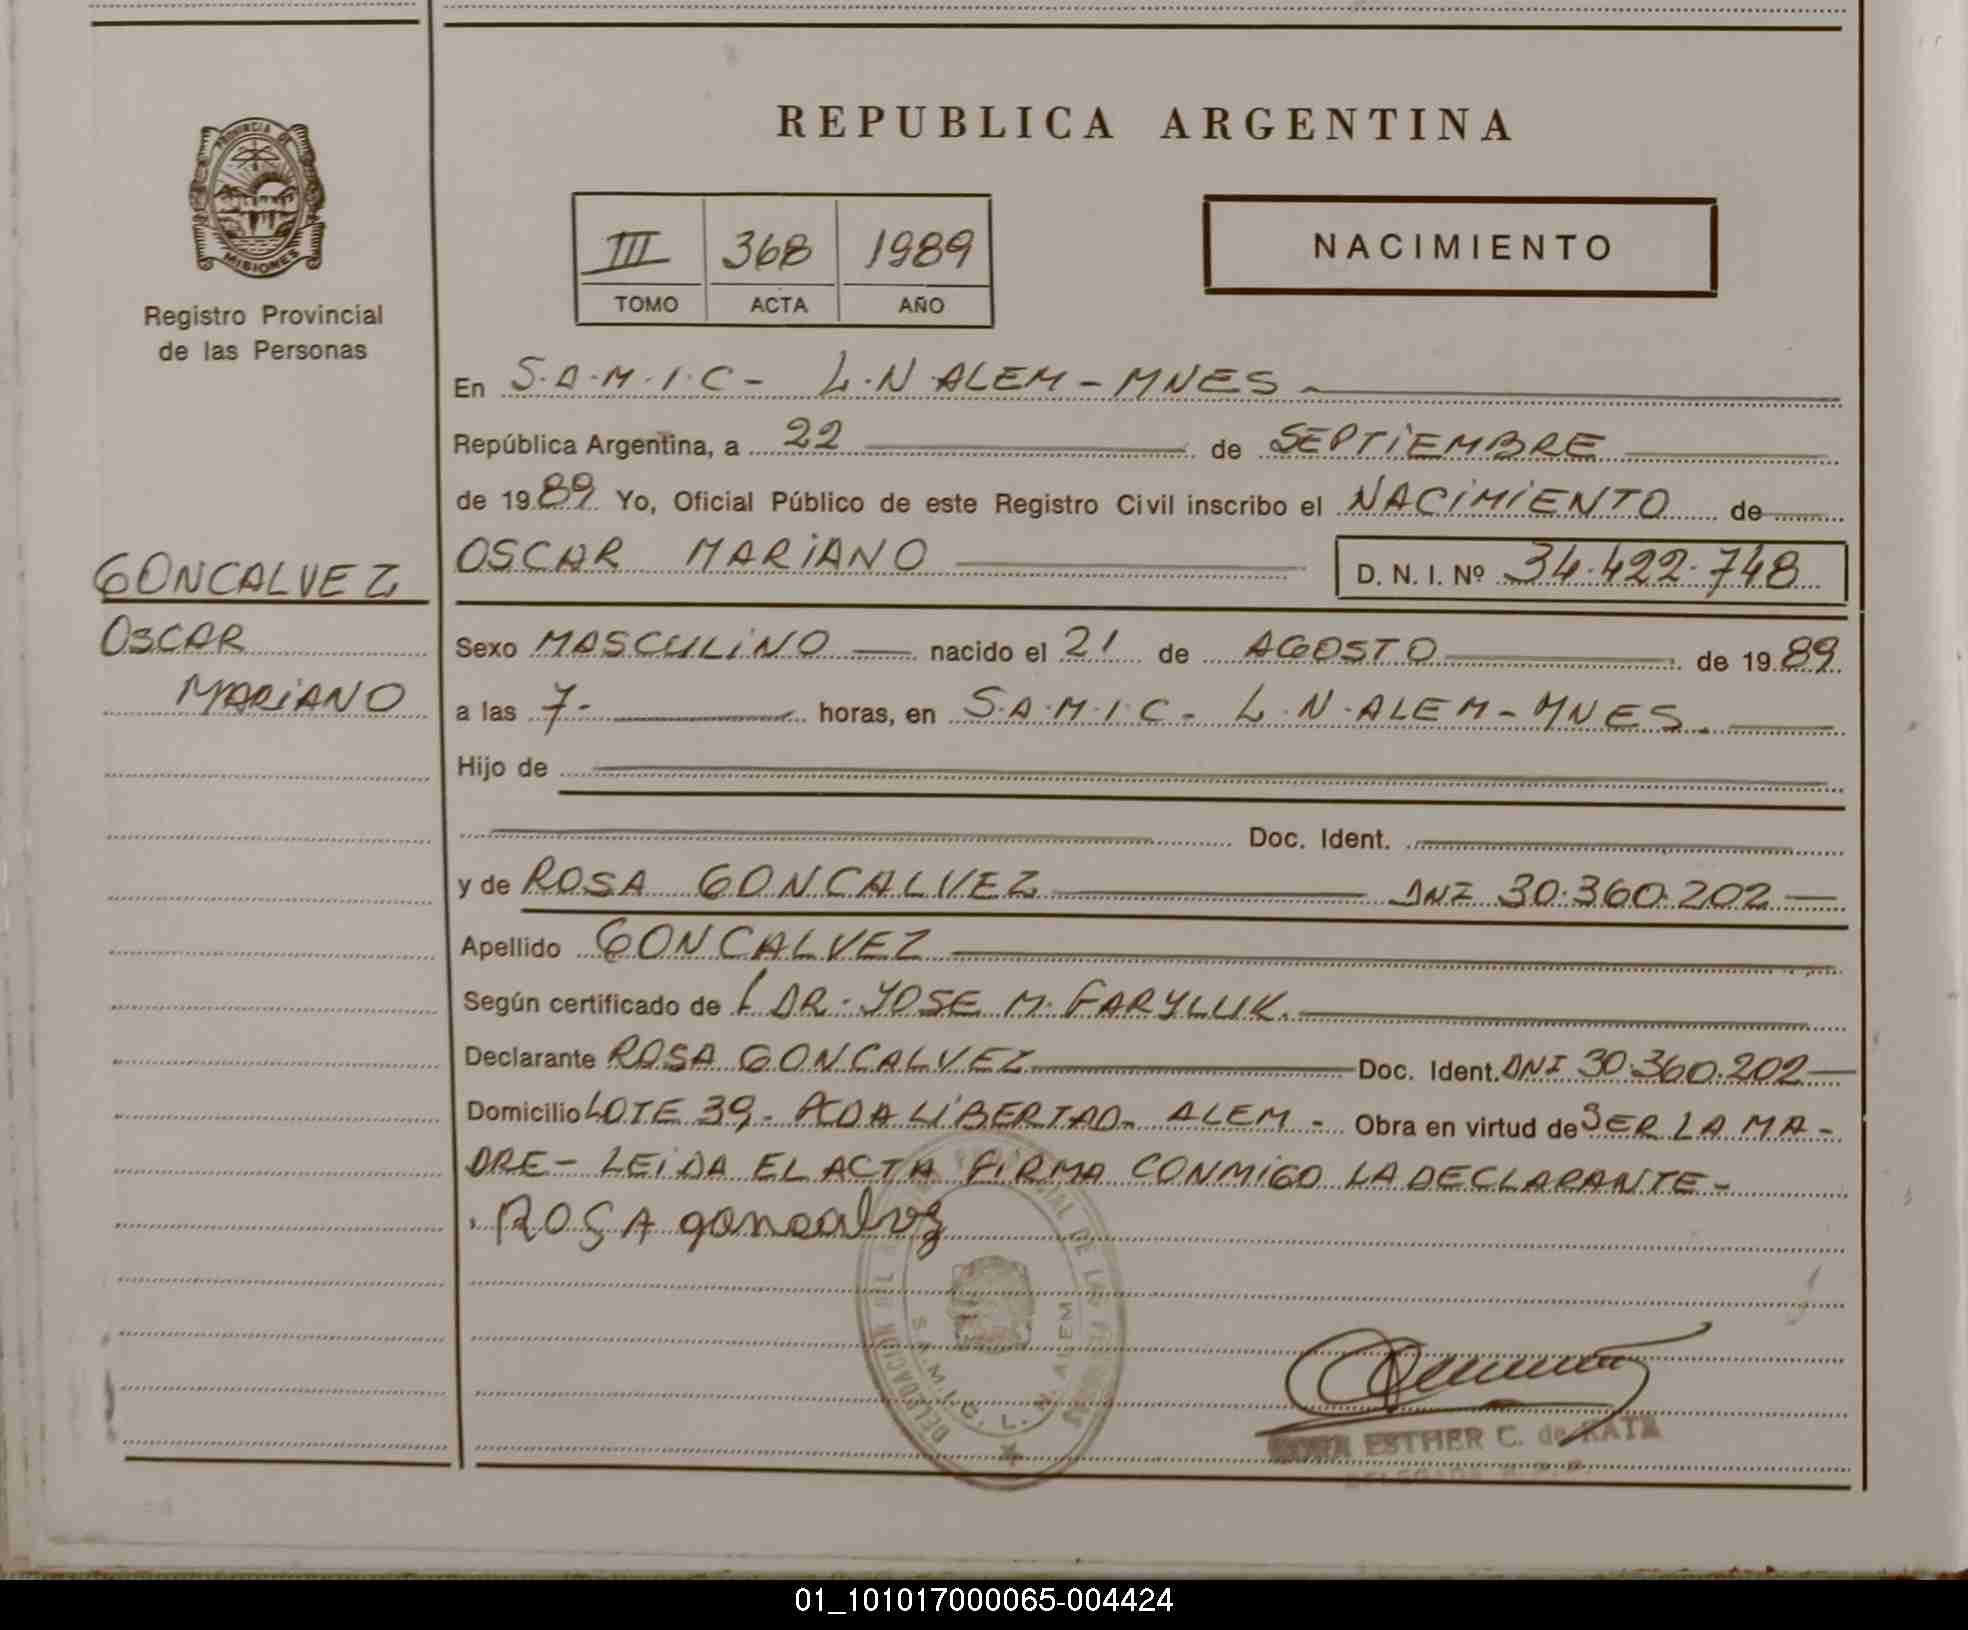 REPUBLICA ARGENTINA
PROVINCIA DE
MISIONES
Registro Provincial
de las Personas
III 368 1989
TOMO ACTA AÑO
NACIMIENTO
En S.A.M.I.C- L.N.ALEM-MNES-
República Argentina, a 22 de SEPTIEMBRE
de 1989 Yo, Oficial Público de este Registro Civil inscribo el NACIMIENTO de
GONCALVEZ
OSCAR
MARIANO
OSCAR MARIANO D. N. I. Nº 34.422.748
Sexo MASCULINO nacido el 21 de AGOSTO de 1989
a las 7- horas, en S.A.M.I.C- L.N.ALEM-MNES.
Hijo de
Doc. Ident.
y de ROSA GONCALVEZ DNI 30.360.202
Apellido GONCALVEZ
Según certificado de DR. JOSE M. FARYLUK.
Declarante ROSA GONCALVEZ Doc. Ident. DNI 30.360.202
Domicilio LOTE 39- PCDA LIBERTAD- ALEM- Obra en virtud de SER LA MA-
DRE- LEIDA EL ACTA FIRMA CONMIGO LA DECLARANTE-
ROSA goncalvez
DE LAS
S.A.M.I.C. L. N. ALEM
ESTHER C. de KATA
01_101017000065-004424